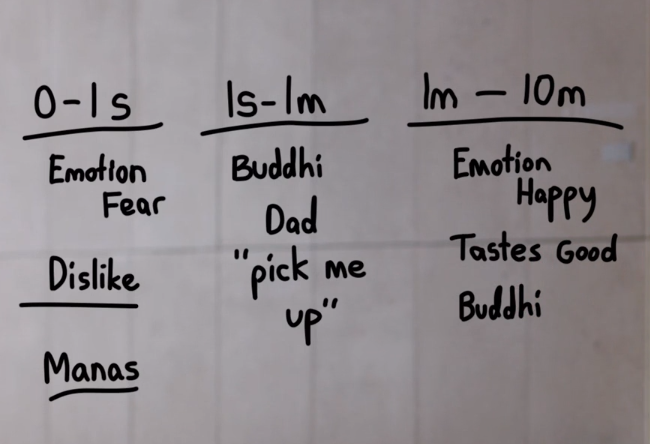 0-1s
Emotion
Fear
Dislike
Manas
1s-1m
Buddhi
Dad
"pick me
up"
1m - 10m
Emotion
Happy
Tastes Good
Buddhi